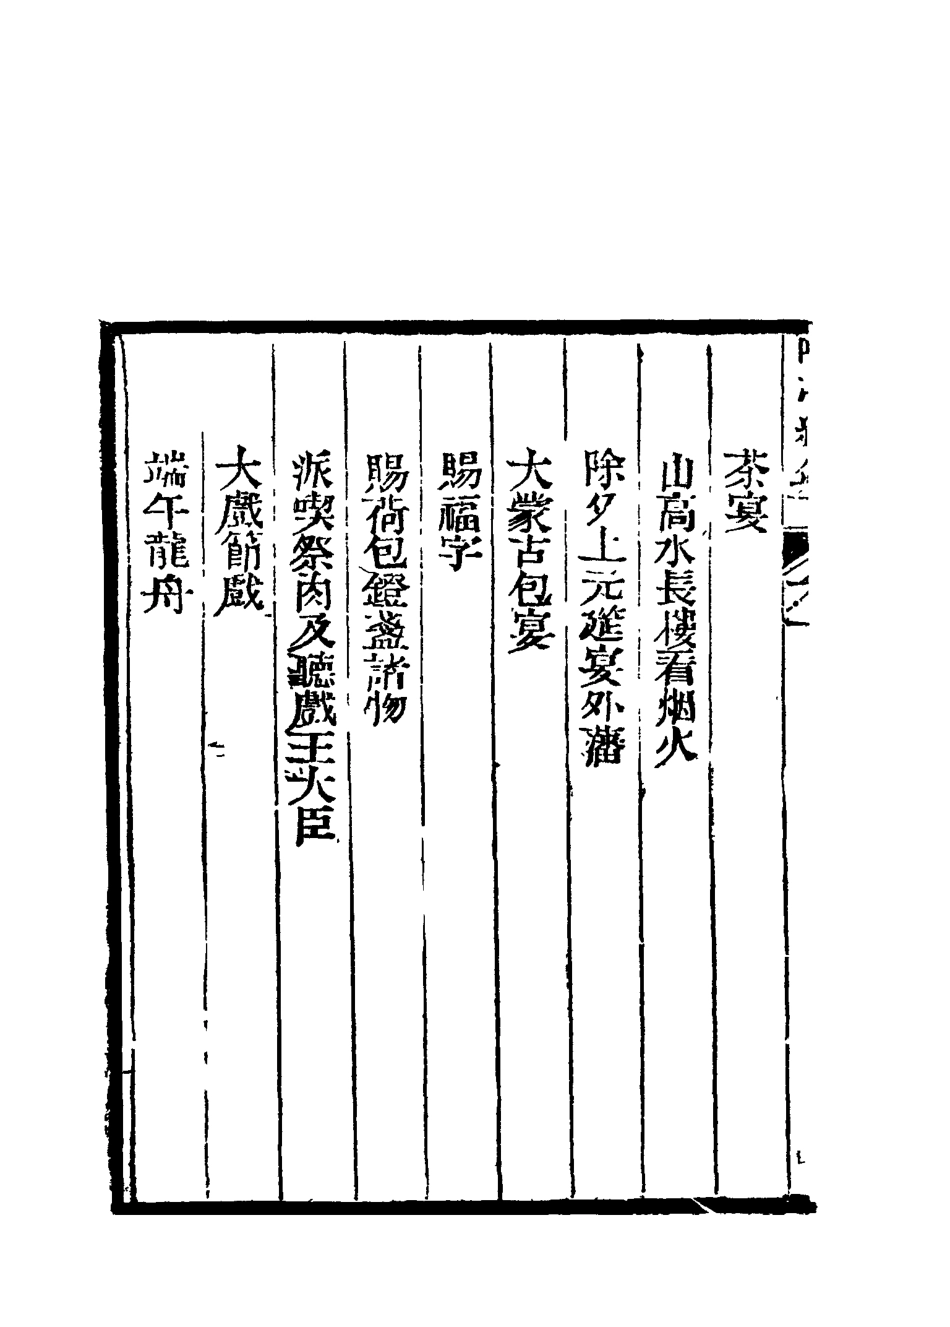 茶宴
山高水長樓看烟火
除夕上元筵宴外藩
大蒙古包宴
賜福字
賜荷包鐙盞諸物
派喫祭肉及聽戲王大臣
大戲節戲
端午龍舟